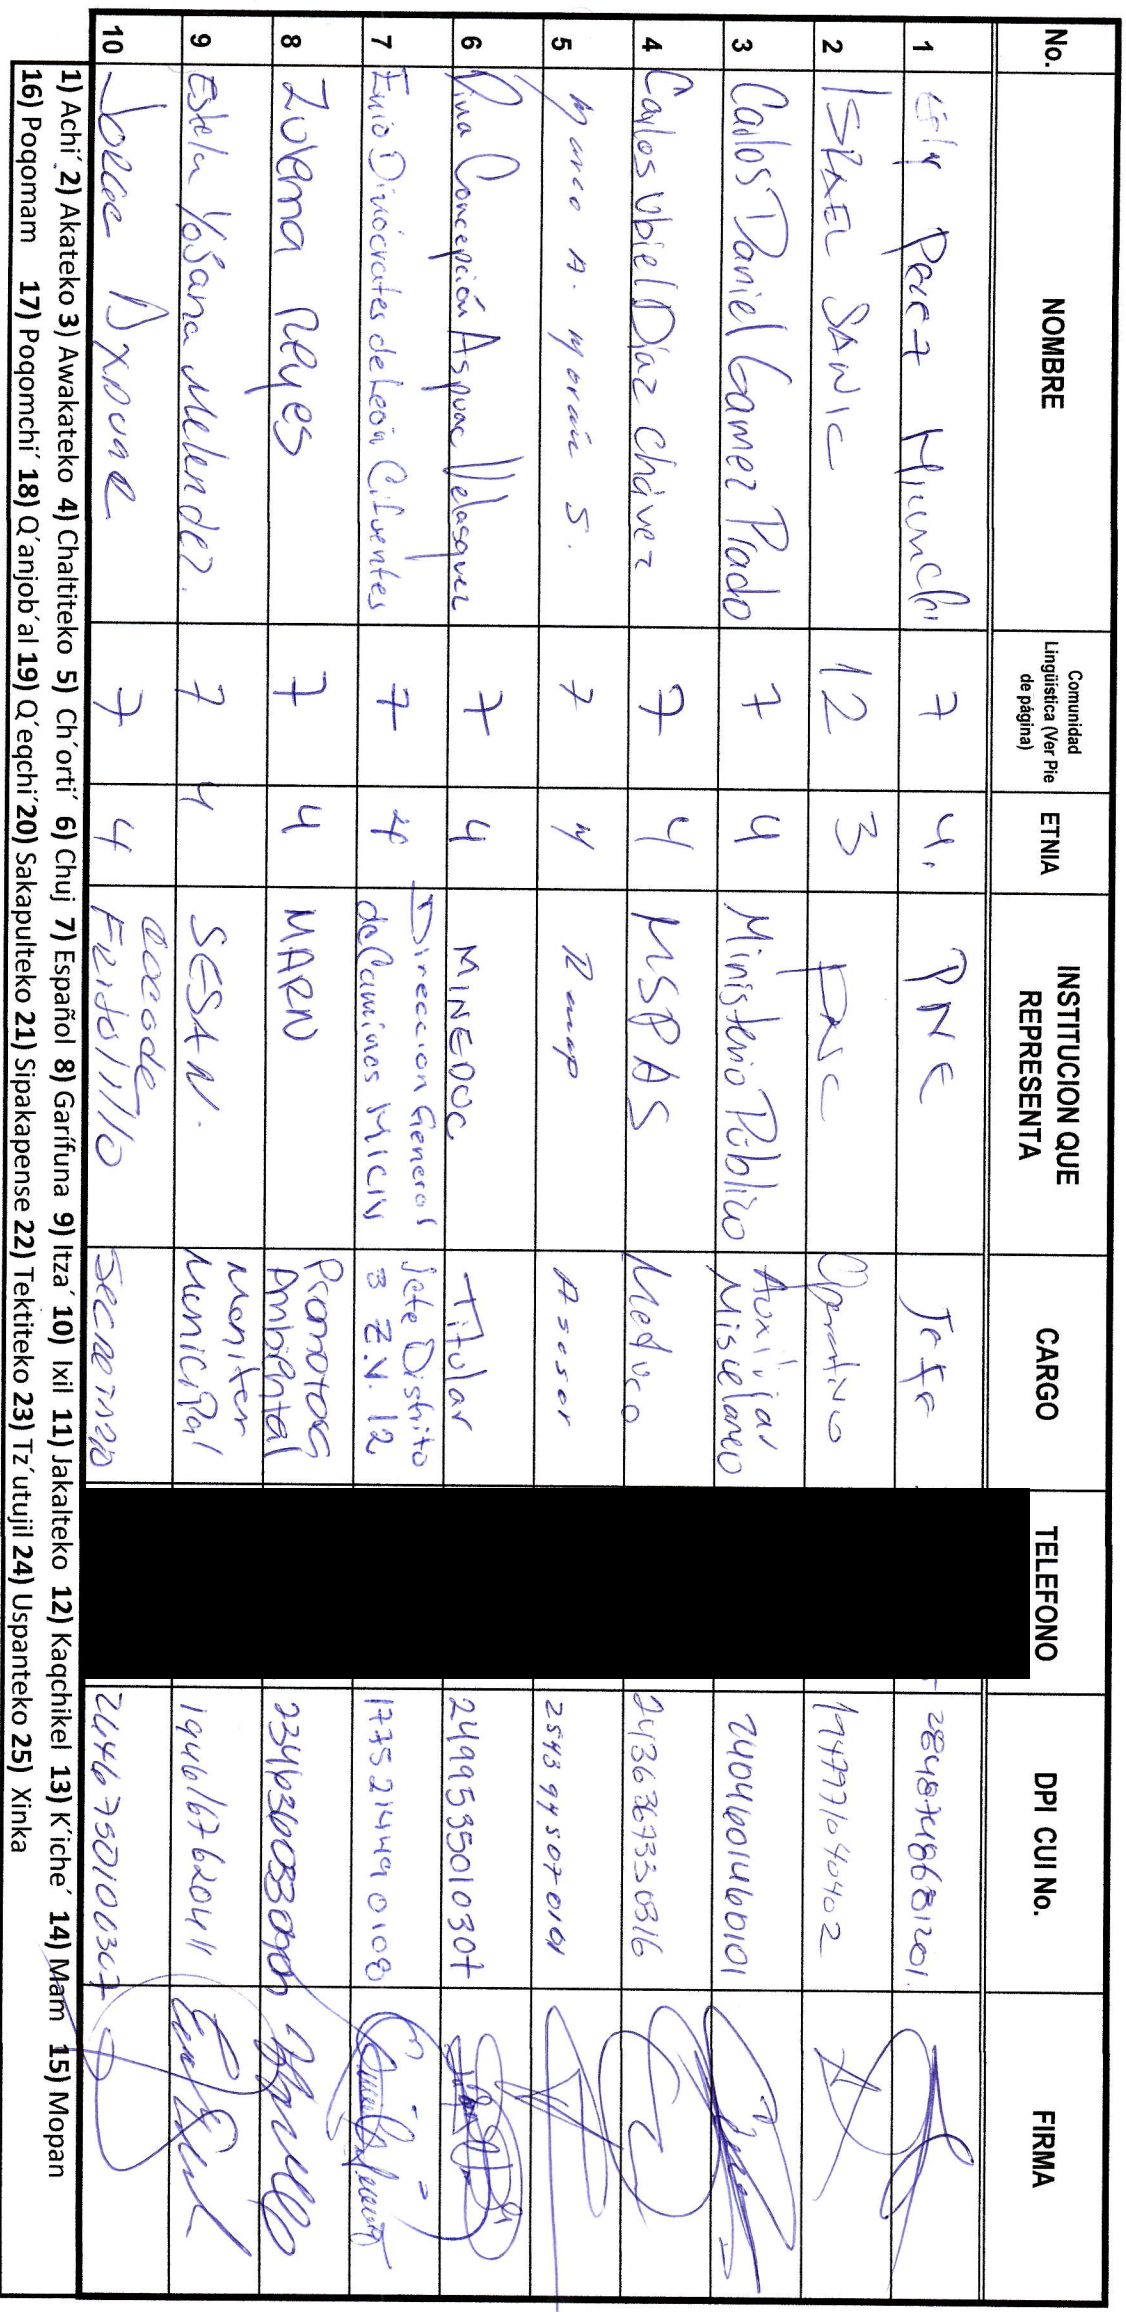 No. NOMBRE Comunidad Lingüistica (Ver Pie de página) ETNIA INSTITUCION QUE REPRESENTA CARGO TELEFONO DPI CUI No. FIRMA
1 Perez 7 4. PNC Jefe
2 ISRAEL SANIC 12 3 Operativo
3 Carlos Daniel Gamez Prado 7 4 Ministerio Público Auxiliar Miselaneo 2404600460101
4 Carlos Ubiel Díaz Chávez 7 4 MSPAS Medico 2436367330316
5 Marco A. S. 7 4 Asesor 2543945070101
6 Dina Concepción Aspuac Velasquez 7 4 MINEDUC Titular 2499535010307
7 Enio Diviocrates de León Cifuentes 7 4 Direccion General de Caminos MICIV Jefe Distrito 3 Z.V. 12 1775214490108
8 Zulema Reyes 7 4 MARN Promotora Ambiental
9 Estela Yosana Melendez. 7 4 SESAN. Moniter Municipal
10 Jorge 7 4 Secretario 2446750100307
1) Achí´ 2) Akateko 3) Awakateko 4) Chaltiteko 5) Ch´orti´ 6) Chuj 7) Español 8) Garífuna 9) Itza´ 10) Ixil 11) Jakalteko 12) Kaqchikel 13) K´iche´ 14) Mam 15) Mopan
16) Poqomam 17) Poqomchi´ 18) Q´anjob´al 19) Q´eqchi´20) Sakapulteko 21) Sipakapense 22) Tektiteko 23) Tz´utujil 24) Uspanteko 25) Xinka